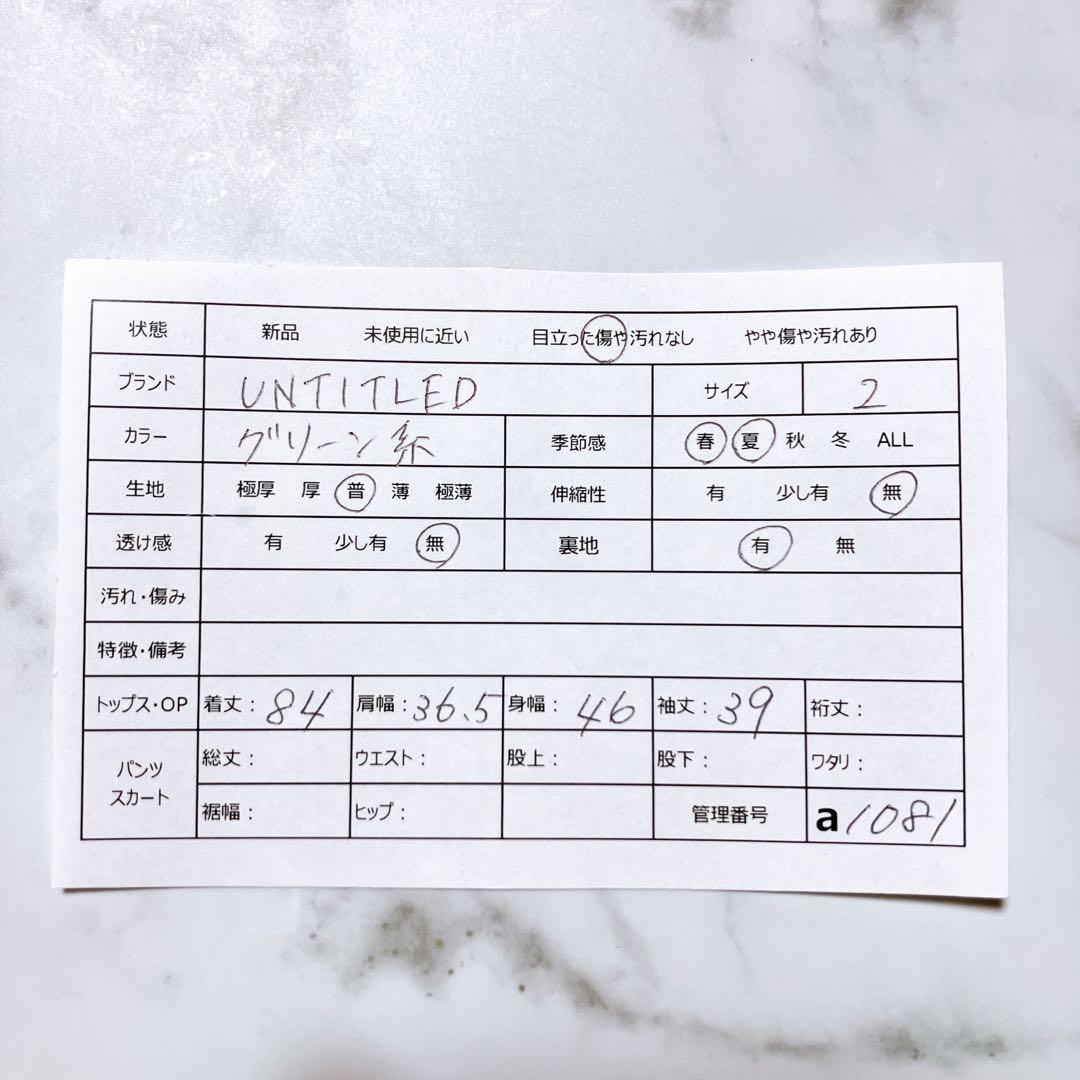 状態 新品 未使用に近い 目立った傷や汚れなし やや傷や汚れあり
ブランド UNTITLED サイズ 2
カラー グリーン系 季節感 春 夏 秋 冬 ALL
生地 極厚 厚 普 薄 極薄 伸縮性 有 少し有 無
透け感 有 少し有 無 裏地 有 無
汚れ・傷み
特徴・備考
トップス・OP 着丈: 84 肩幅: 36.5 身幅: 46 袖丈: 39 裄丈:
パンツ スカート 総丈: ウエスト: 股上: 股下: ワタリ:
裾幅: ヒップ: 管理番号 a1081